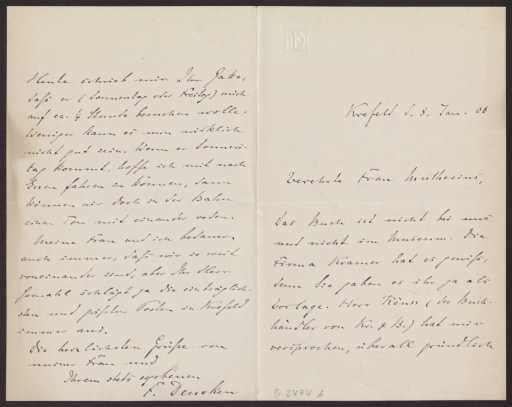 Krefeld d. 8. Jan. 06
Verehrte Frau Muthesius,
Das Buch ist nicht bei mir
und nicht im Museum. Die
Firma Kramer hat es gewiss,
denn Sie gaben es ihr ja als
Vorlage. Herr (der Buch-
händler von Kr. & B.) hat mir
versprochen, überall gründlich
Heute schrieb mir Ihr Gatte,
daß er (Sonnabend oder Freitag) mich
auf ca. ½ Stunde besuchen wolle.
Weniger kann es nun wirklich
nicht gut sein. Wenn er Sonnen-
tag kommt, hoffe ich mit nach
Essen fahren zu können, dann
können wir doch in der Bahn
einen Ton mit einander reden.
Meine Frau und ich bedauern
auch immer, daß wir so weit
voneinander sind, aber Ihr Herr
Gemahl schlägt ja die einträglich-
sten und Posten in Krefeld
immer aus.
Die herzlichsten Grüße von
meiner Frau und
Ihrem stets ergebenen
F. Deneken